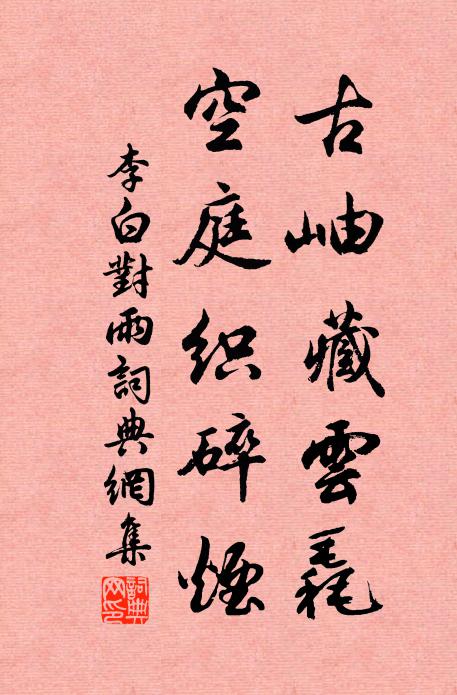 古岫藏雲毳
空庭織碎煙
李白對雨詞典網集
詞典網印